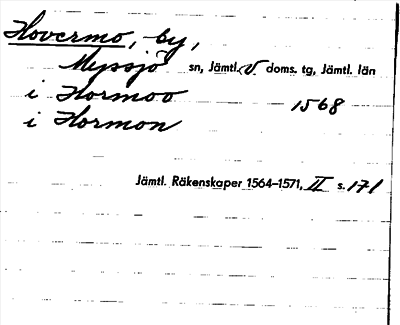 Hovermo, by,
Myssjö sn, Jämtl. V doms. tg, Jämtl. län
i Hormoo 1568
i Hormon
Jämtl. Räkenskaper 1564–1571, II s. 171